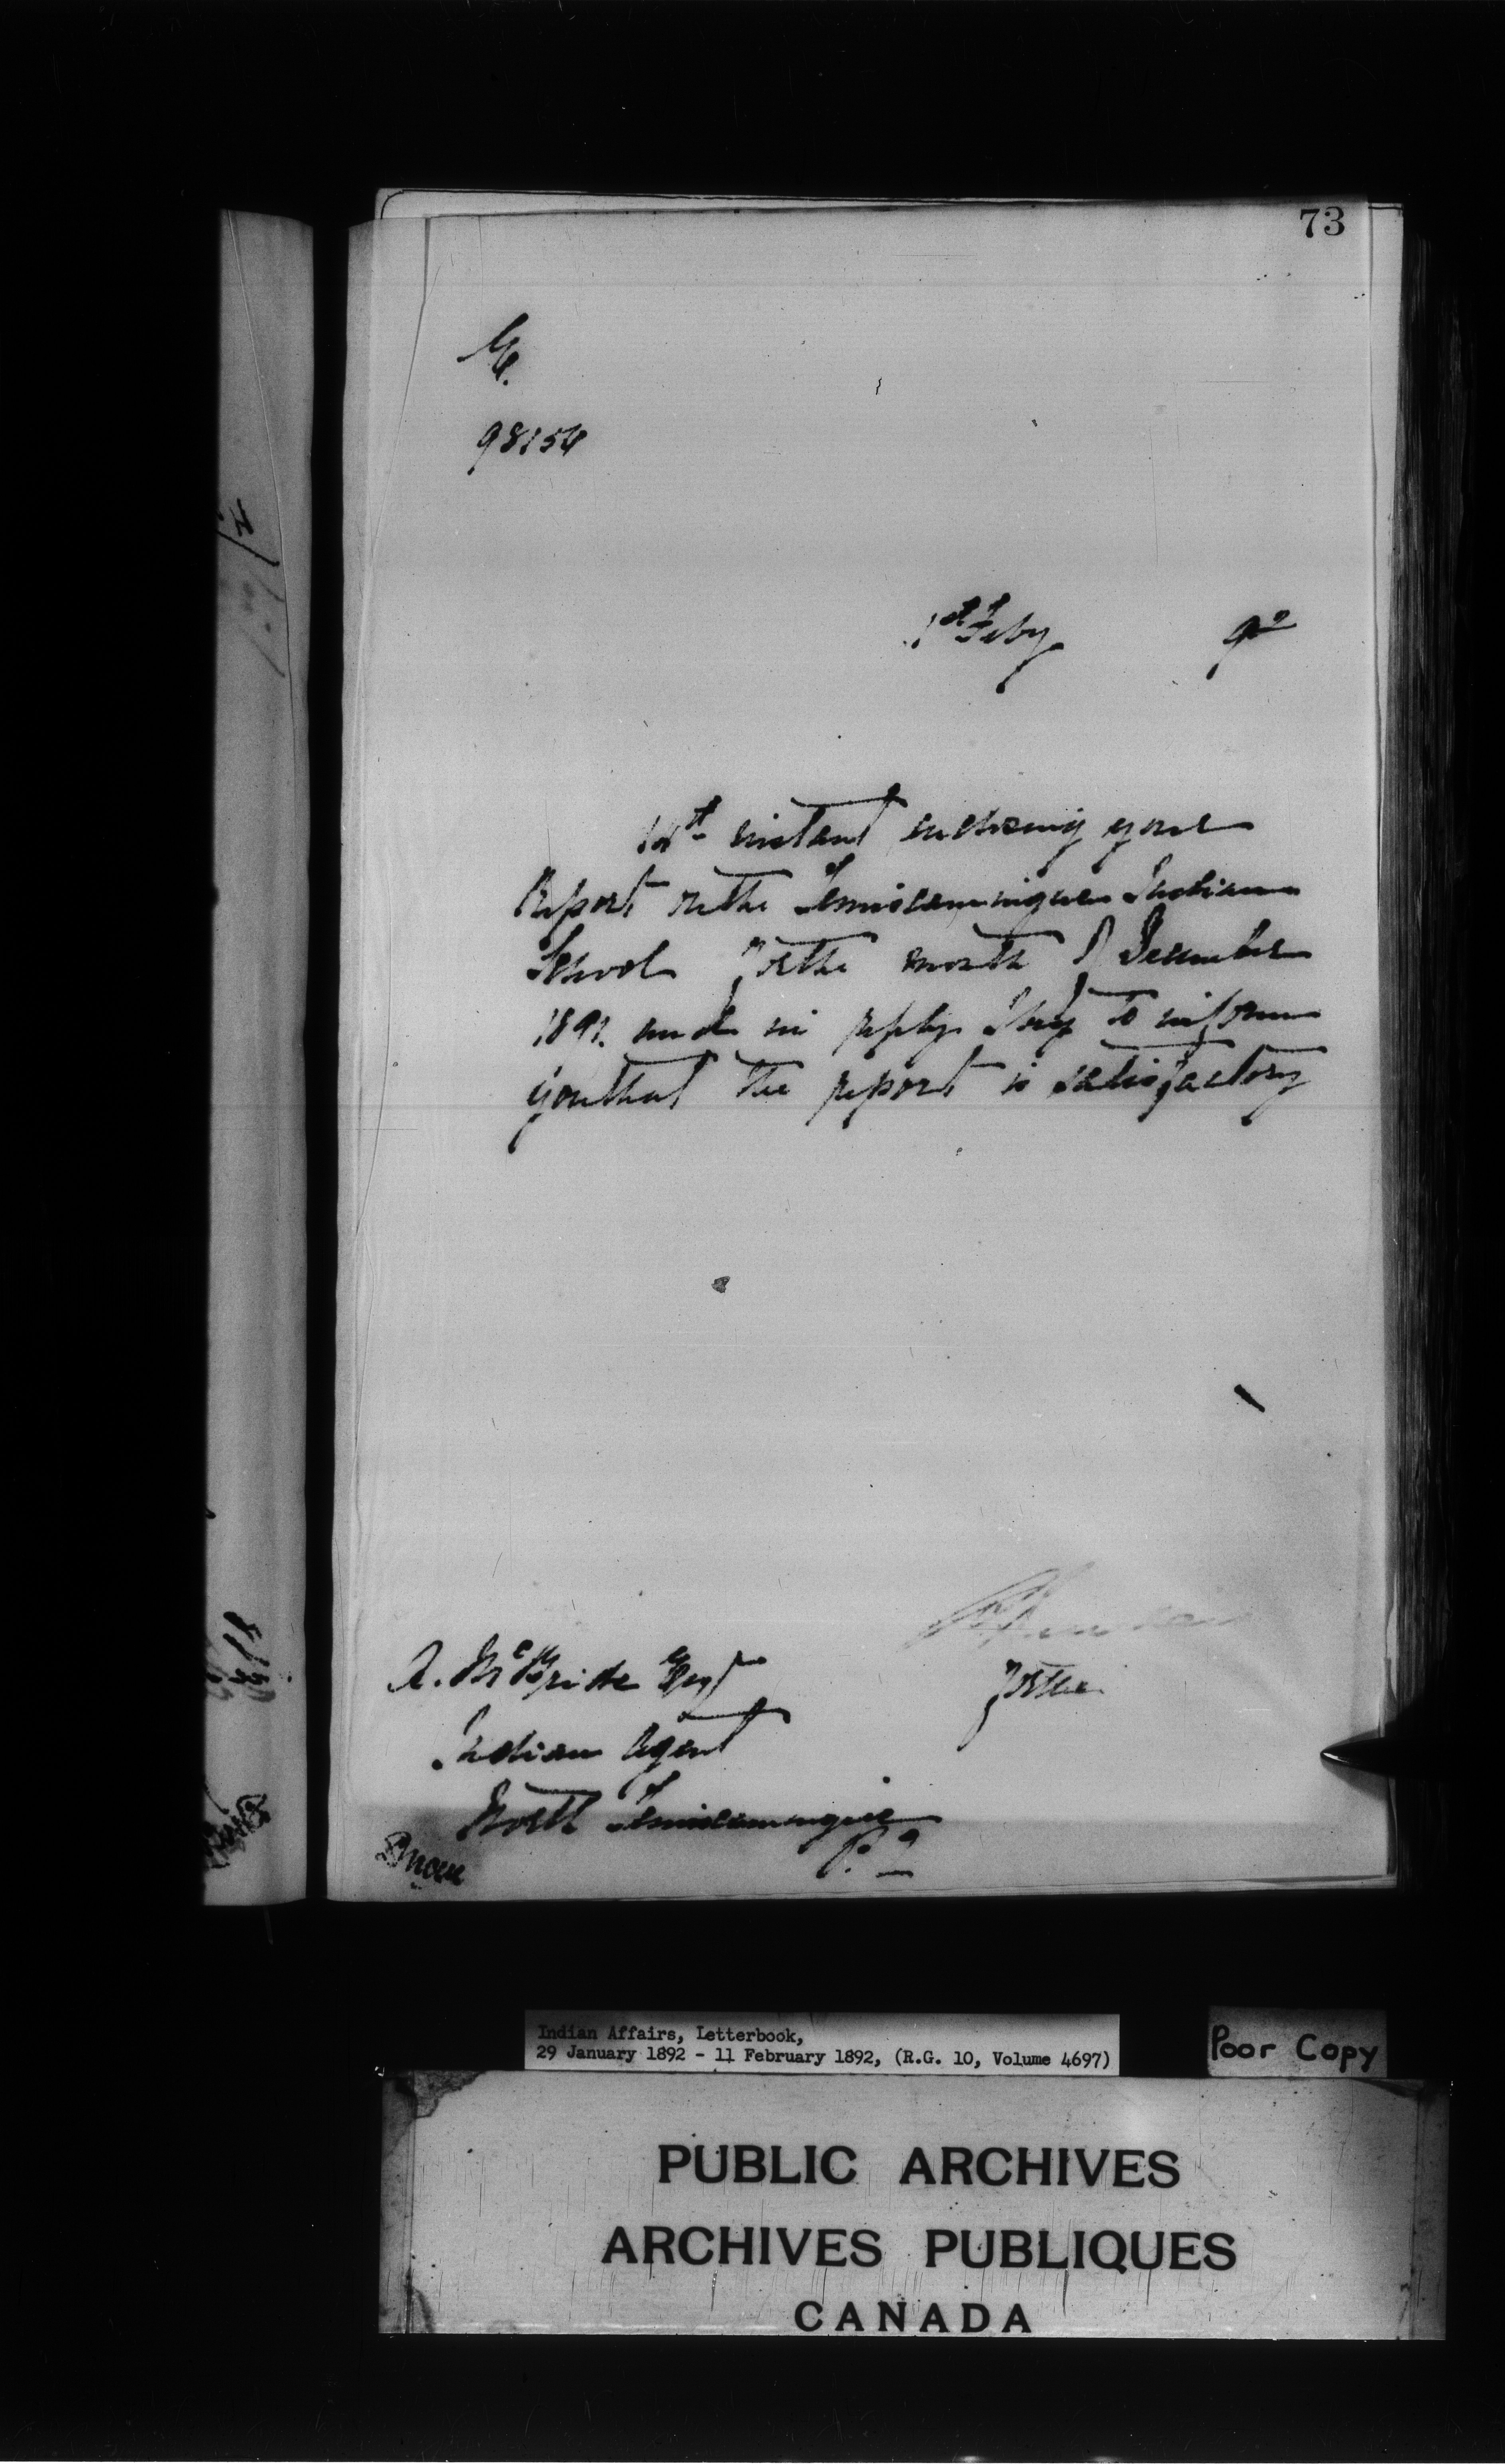 73
98154
1st Feby 92
instant enclosing your
Report re the Temiscamingue Indian
School for the month of December
1891. and in reply I beg to inform
you that the report is satisfactory
A. McBride Esq
Indian Agent
North Temiscamingue
P. Q
for the
Indian Affairs, Letterbook,
29 January 1892 - 11 February 1892, (R.G. 10, Volume 4697)
Poor Copy
PUBLIC ARCHIVES
ARCHIVES PUBLIQUES
CANADA